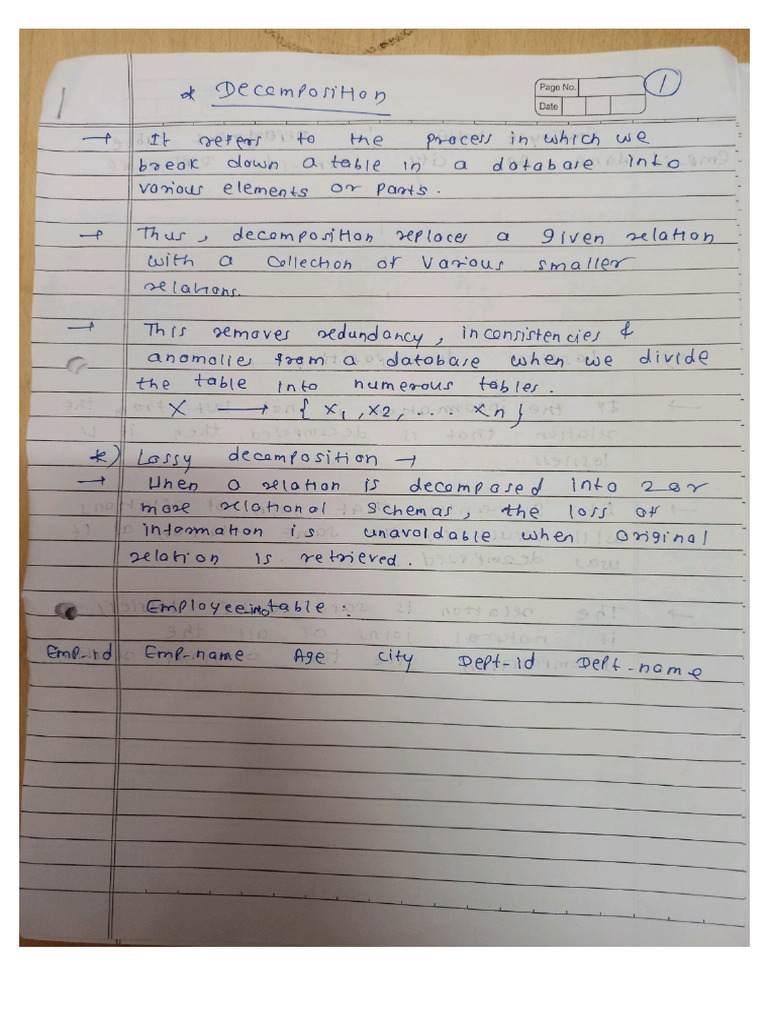 1
* Decomposition
Page No. 1
Date
→ It refers to the process in which we
break down a table in a database into
various elements or parts.
→ Thus, decomposition replaces a given relation
with a collection of various smaller
relations.
→ This removes redundancy, inconsistencies &
anomolie from a database when we divide
the table into numerous tables.
X → { X1, X2, ... Xn }
*) Lossy decomposition →
→ When a relation is decomposed into 2 or
more relational schemas, the loss of
information is unavoidable when original
relation is retrieved.
Employee info table :
Emp-id Emp-name Age city Dept-id Dept-name